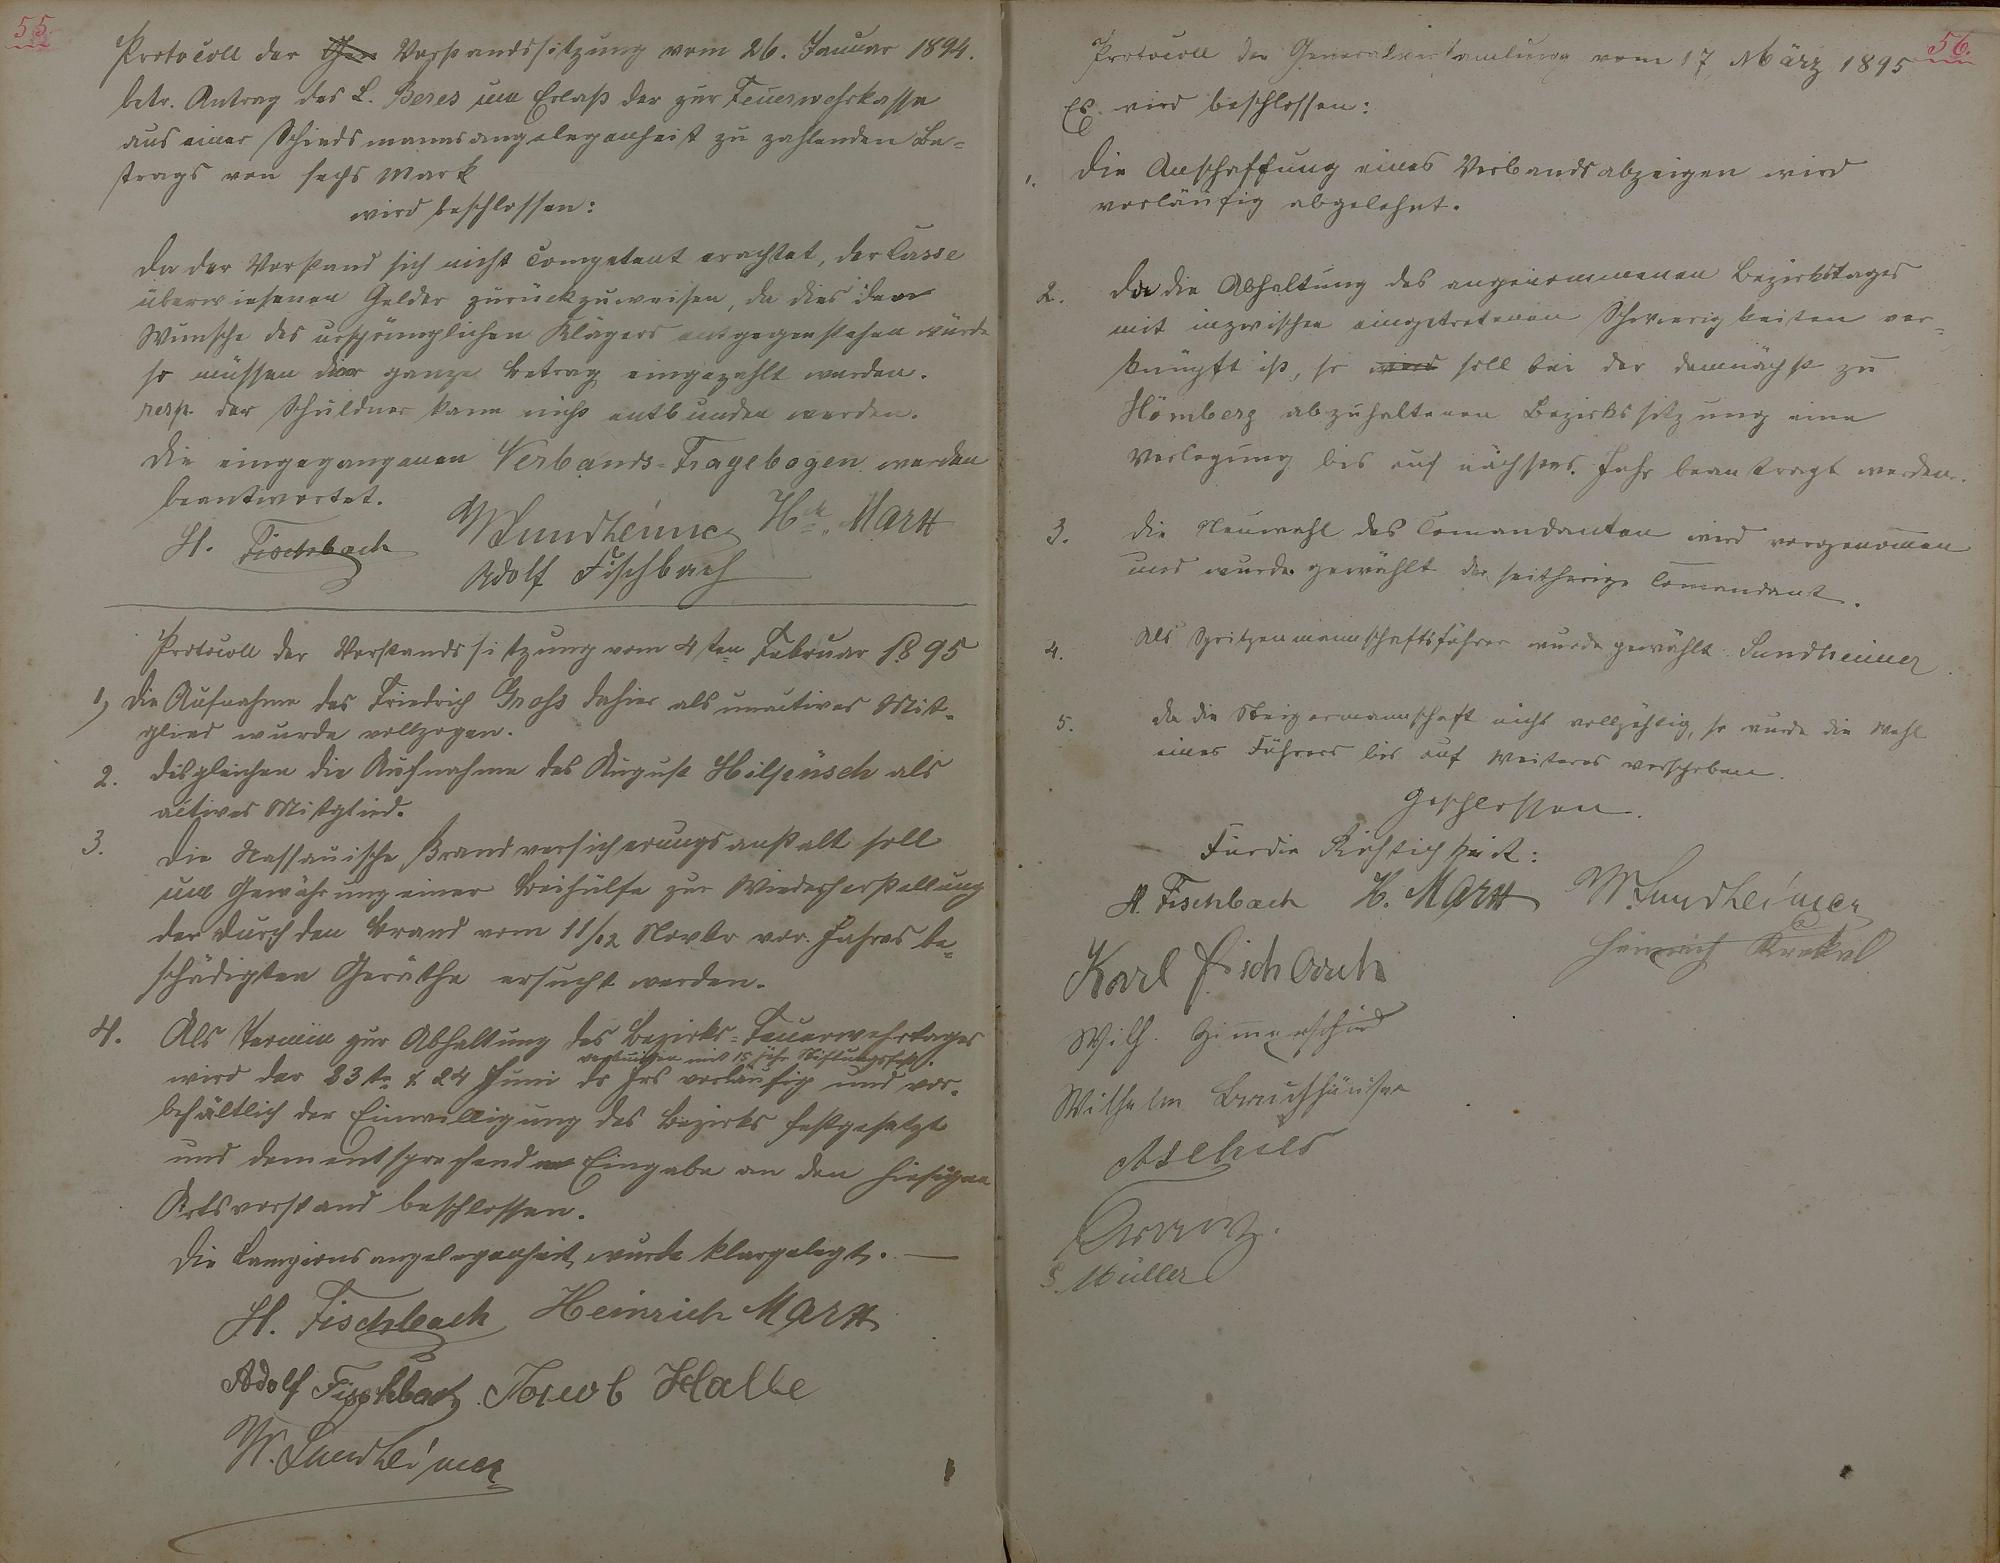 55.
Protocoll der Gen Vorstandssitzung vom 26. Januar 1894.
betr. Antrag des L. Beres um Erlaß der zur Feuerwehrkasse
aus einer Schiedsmannsangelegenheit zu zahlenden Be=
trags von sechs Mark
wird beschlossen:
Da der Vorstand sich nicht competent erachtet, der Casse
überwiesenen Gelder zurückzuweisen, da dies dem
Wunsche des ursprünglichen Klägers entgegenstehen würde
so müssen der ganze Betrag eingezahlt werden.
resp. der Schuldner kann nicht entbunden werden.
Die eingegangenen Verbands=Fragebogen werden
beantwortet.
H. Fischbach W Sundheimer Hch. Martt
Adolf Fischbach
Protocoll der Vorstandssitzung vom 4ten Februar 1895
1, Die Aufnahme des Friedrich Groß dahier als unactives Mit=
glied wurde vollzogen.
2. desgleichen die Aufnahme des August Hilpüsch als
actives Mitglied.
3. Die Nassauische Brandversicherungsanstalt soll
um Gewährung einer Beihülfe zur Wiederherstellung
der durch den Brand vom 11/12 Novbr vor. Jahres be=
schädigten Geräthe ersucht werden.
4. Als Termin zur Abhaltung des Bezirks=Feuerwehrtages
verbunden mit 15 jähr Stiftungsfest.
wird der 23te & 24 Juni ds Jrs vorläufig und vor=
behältlich der Einwilligung des Bezirks festgesetzt
und dementsprechend Eingabe an den hiesigen
Ortsvorstand beschlossen.
Die Lampionsangelegenheit wurde klargelegt. —
H. Fischbach Heinrich Martt
Adolf Fischbach Jacob Halbe
W. Sundheimer
56.
Protocoll der Generalversamlung vom 17 März 1895
Es wird beschlossen:
1. Die Anschaffung eines Verbandsabzeigen wird
vorläufig abgelehnt.
2. Da die Abhaltung des angenommenen Bezirkstages
mit inzwischen eingetretenen Schwierigkeiten ver=
knüpft ist, so wird soll bei der demnächst zu
Hömberg abzuhaltenen Bezirkssitzung eine
Verlegung bis auf nächstes Jahr beantragt werden.
3. Die Neuwahl des Comandanten wird vorgenommen
und wurde gewählt der seitherige Comandant.
4. Als Spritzenmannschaftsführer wurde gewählt Sundheimer
5. Da die Steigermannschaft nicht vollzählig, so wurde die Wahl
eines Führers bis auf Weiteres verschoben.
Geschlossen.
Für die Richtigkeit:
H. Fischbach H. Martt W. Sundheimer
Karl Fischbach Heinrich Krekel
Wilh. Zimmerschied
Wilhelm Bruchhäuser
Müller